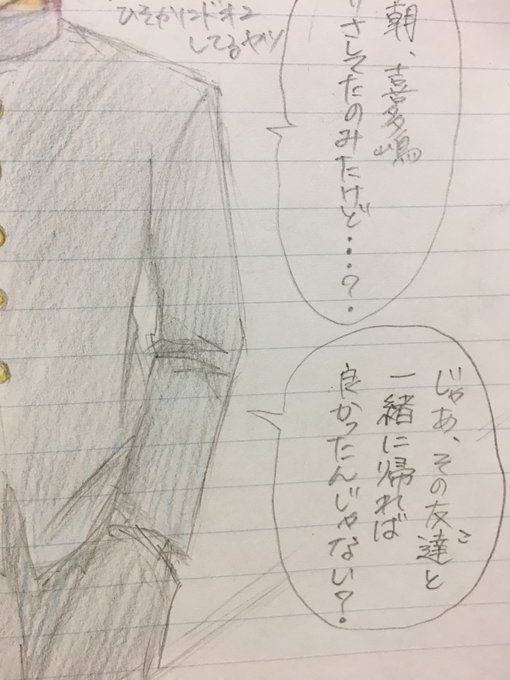 ひそかにドキン
してるヤツ
朝、喜多嶋
りさしてたのみたけど・・・?
じゃあ、その友達(こ)と
一緒に帰れば
良かったんじゃない?